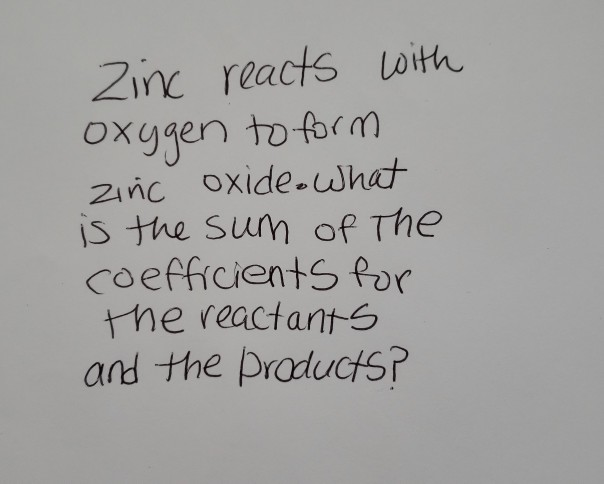 Zinc reacts with
oxygen to form
zinc oxide. What
is the sum of The
coefficients for
the reactants
and the products?